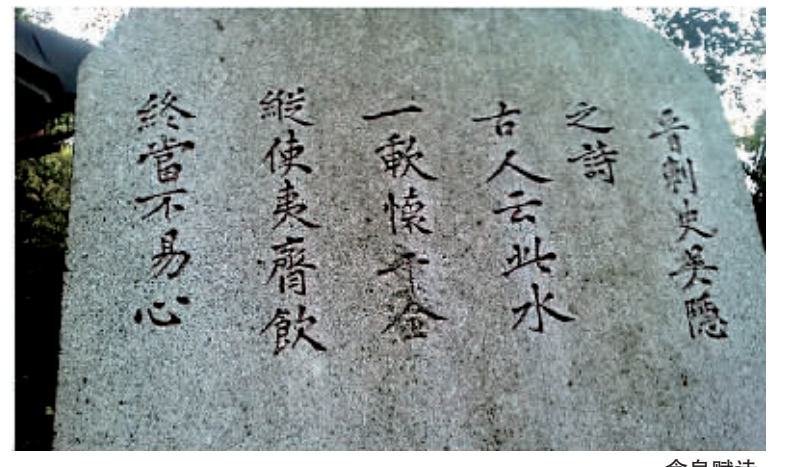 晋刺史吳隱
之詩
古人云此水
一歃懷千金
縱使夷齊飲
終當不易心